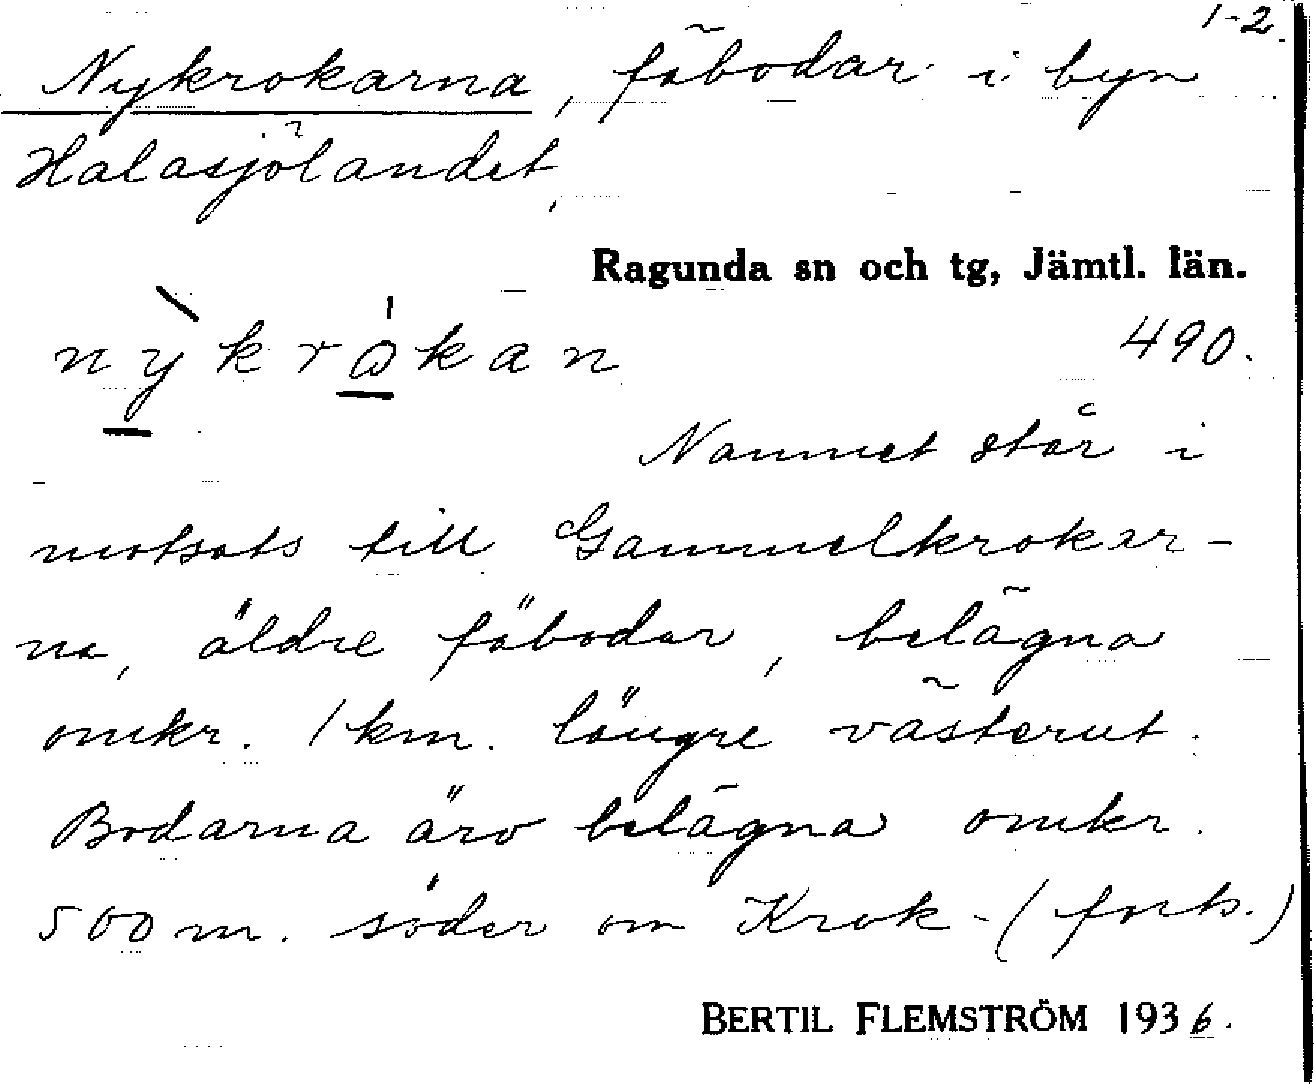 1-2.
Nykrokarna, fäbodar i byn
Halasjölandet,
Ragunda sn och tg, Jämtl. län.
nỳkråkan
490.
Namnet står i
motsats till Gammelkrokar-
na, äldre fäbodar, belägna
omkr. 1 km. längre västerut.
Bodarna äro belägna omkr.
500 m. söder om Krok- (forts.)
BERTIL FLEMSTRÖM 1936.